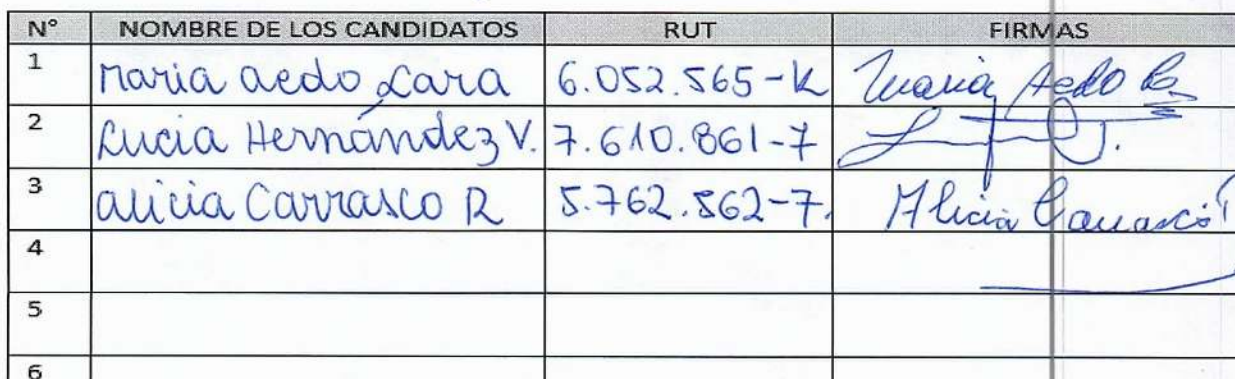 N° NOMBRE DE LOS CANDIDATOS RUT FIRMAS
1 maria aedo Lara 6.052.565-K Maria Aedo L
2 Lucia Hernández V. 7.610.861-7
3 alicia Carrasco R 5.762.562-7. Alicia Carrasco
4
5
6